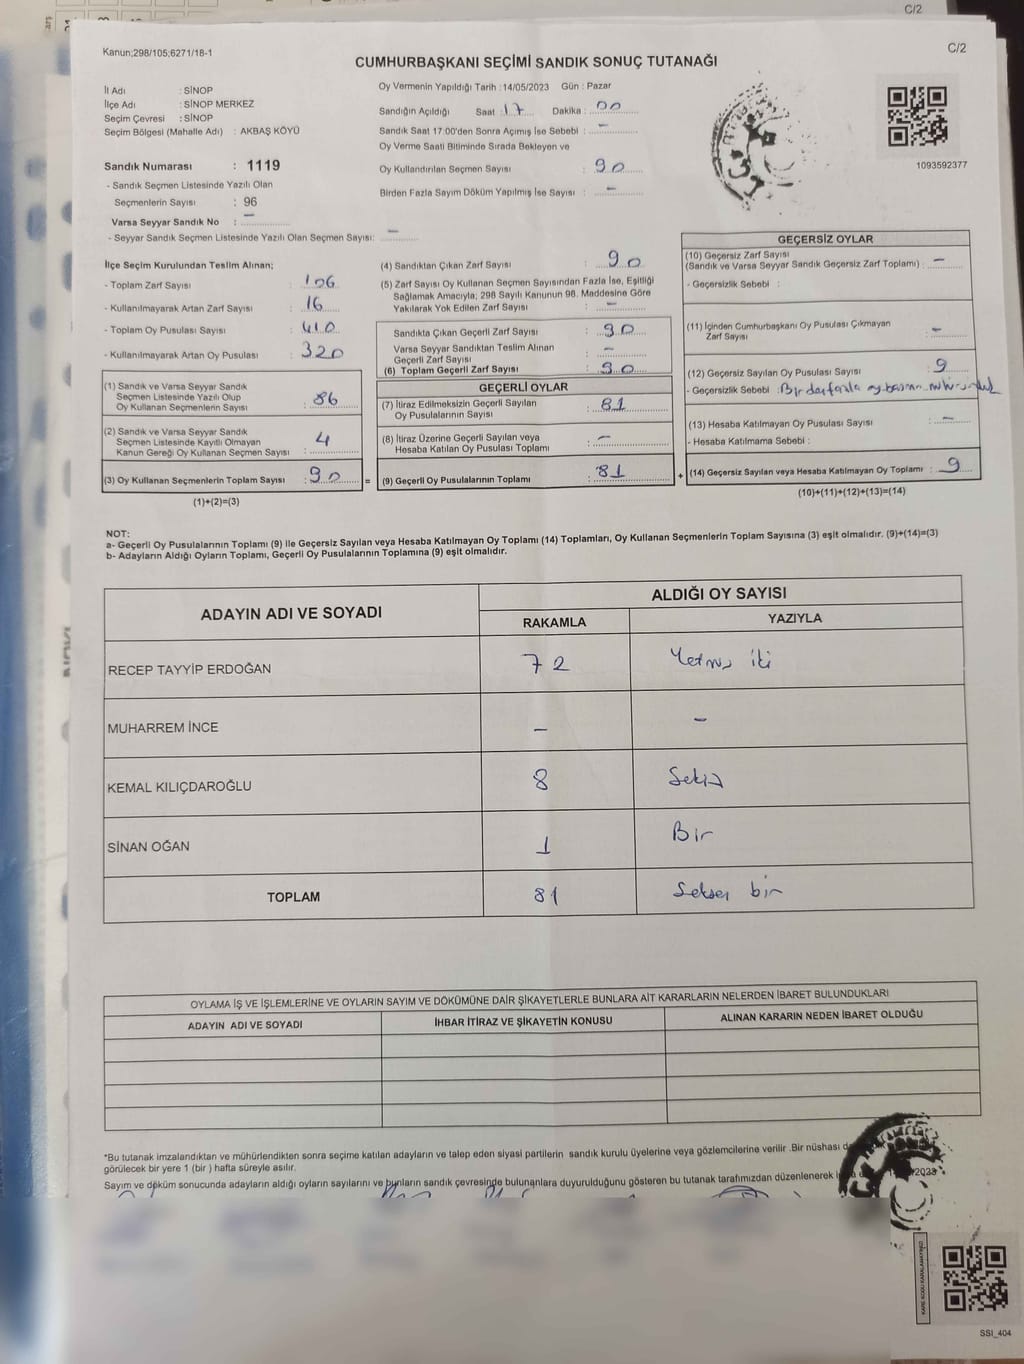 C/2
Kanun;298/105;6271/18-1
C/2
CUMHURBAŞKANI SEÇİMİ SANDIK SONUÇ TUTANAĞI
İl Adı : SİNOP
İlçe Adı : SİNOP MERKEZ
Seçim Çevresi : SİNOP
Seçim Bölgesi (Mahalle Adı) : AKBAŞ KÖYÜ
Sandık Numarası : 1119
- Sandık Seçmen Listesinde Yazılı Olan
Seçmenlerin Sayısı : 96
Varsa Seyyar Sandık No : –
- Seyyar Sandık Seçmen Listesinde Yazılı Olan Seçmen Sayısı: –
Oy Vermenin Yapıldığı Tarih : 14/05/2023 Gün : Pazar
Sandığın Açıldığı Saat : 17 Dakika : 00
Sandık Saat 17:00'den Sonra Açımış İse Sebebi : –
Oy Verme Saati Bitiminde Sırada Bekleyen ve
Oy Kullandırılan Seçmen Sayısı : 90
Birden Fazla Sayım Döküm Yapılmış İse Sayısı : –
1093592377
İlçe Seçim Kurulundan Teslim Alınan;
- Toplam Zarf Sayısı : 106
- Kullanılmayarak Artan Zarf Sayısı : 16
- Toplam Oy Pusulası Sayısı : 410
- Kullanılmayarak Artan Oy Pusulası : 320
(1) Sandık ve Varsa Seyyar Sandık
Seçmen Listesinde Yazılı Olup
Oy Kullanan Seçmenlerin Sayısı : 86
(2) Sandık ve Varsa Seyyar Sandık
Seçmen Listesinde Kayıtlı Olmayan
Kanun Gereği Oy Kullanan Seçmen Sayısı : 4
(3) Oy Kullanan Seçmenlerin Toplam Sayısı : 90 =
(1)+(2)=(3)
(4) Sandıktan Çıkan Zarf Sayısı : 90
(5) Zarf Sayısı Oy Kullanan Seçmen Sayısından Fazla İse, Eşitliği
Sağlamak Amacıyla; 298 Sayılı Kanunun 98. Maddesine Göre
Yakılarak Yok Edilen Zarf Sayısı : –
Sandıkta Çıkan Geçerli Zarf Sayısı : 90
Varsa Seyyar Sandıktan Teslim Alınan
Geçerli Zarf Sayısı : –
(6) Toplam Geçerli Zarf Sayısı : 90
GEÇERLİ OYLAR
(7) İtiraz Edilmeksizin Geçerli Sayılan
Oy Pusulalarının Sayısı : 81
(8) İtiraz Üzerine Geçerli Sayılan veya
Hesaba Katılan Oy Pusulası Toplamı : –
(9) Geçerli Oy Pusulalarının Toplamı : 81 +
GEÇERSİZ OYLAR
(10) Geçersiz Zarf Sayısı
(Sandık ve Varsa Seyyar Sandık Geçersiz Zarf Toplamı) : –
- Geçersizlik Sebebi :
(11) İçinden Cumhurbaşkanı Oy Pusulası Çıkmayan
Zarf Sayısı : –
(12) Geçersiz Sayılan Oy Pusulası Sayısı : 9
- Geçersizlik Sebebi : Birden fazla oy basma
(13) Hesaba Katılmayan Oy Pusulası Sayısı : –
- Hesaba Katılmama Sebebi :
(14) Geçersiz Sayılan veya Hesaba Katılmayan Oy Toplamı : 9
(10)+(11)+(12)+(13)=(14)
NOT:
a- Geçerli Oy Pusulalarının Toplamı (9) ile Geçersiz Sayılan veya Hesaba Katılmayan Oy Toplamı (14) Toplamları, Oy Kullanan Seçmenlerin Toplam Sayısına (3) eşit olmalıdır. (9)+(14)=(3)
b- Adayların Aldığı Oyların Toplamı, Geçerli Oy Pusulalarının Toplamına (9) eşit olmalıdır.
ADAYIN ADI VE SOYADI
ALDIĞI OY SAYISI
RAKAMLA YAZIYLA
RECEP TAYYİP ERDOĞAN 72 Yetmiş iki
MUHARREM İNCE – –
KEMAL KILIÇDAROĞLU 8 Sekiz
SİNAN OĞAN 1 Bir
TOPLAM 81 Seksen bir
OYLAMA İŞ VE İŞLEMLERİNE VE OYLARIN SAYIM VE DÖKÜMÜNE DAİR ŞİKAYETLERLE BUNLARA AİT KARARLARIN NELERDEN İBARET BULUNDUKLARI
ADAYIN ADI VE SOYADI İHBAR İTİRAZ VE ŞİKAYETİN KONUSU ALINAN KARARIN NEDEN İBARET OLDUĞU
*Bu tutanak imzalandıktan ve mühürlendikten sonra seçime katılan adayların ve talep eden siyasi partilerin sandık kurulu üyelerine veya gözlemcilerine verilir .Bir nüshası
görülecek bir yere 1 (bir ) hafta süreyle asılır.
Sayım ve döküm sonucunda adayların aldığı oyların sayılarını ve bunların sandık çevresinde bulunanlara duyurulduğunu gösteren bu tutanak tarafımızdan düzenlenerek
KARE KODU KARALAMAYINIZ!
SSI_404